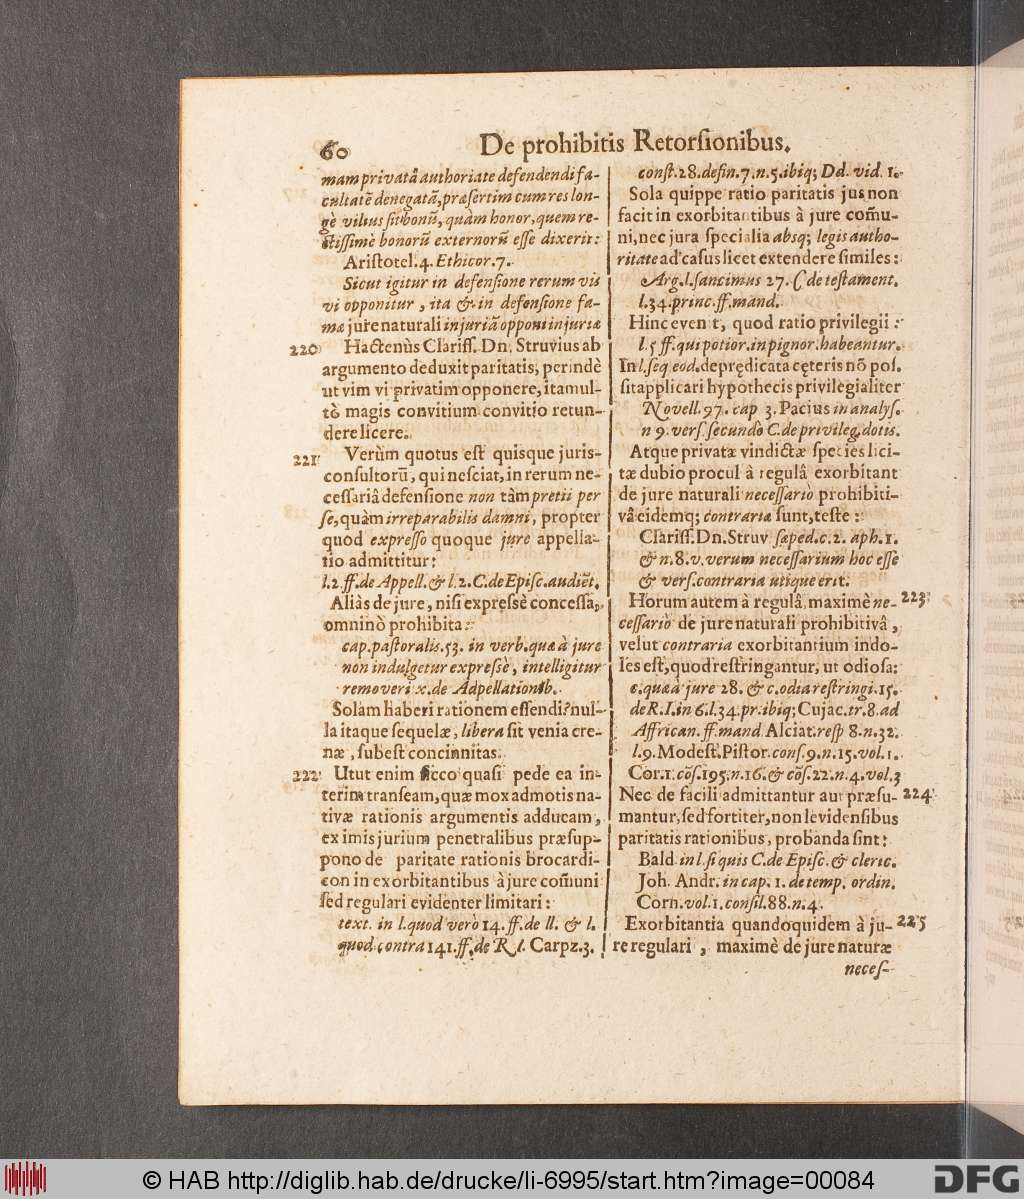 60
De prohibitis Retorsionibus.
mam privatâ authoriate defendendi fa-
cultatē denegatā, præsertim cum res lon-
gè vilius sit bonū, quàm honor, quem re-
ctissimè bonorū externorū esse dixerit:
Aristotel. 4. Ethicor. 7.
Sicut igitur in defensione rerum vis
vi opponitur, ita & in defensione fa-
mæ jure naturali injuriā opponi injuriæ
220 Hactenùs Clariss. Dn. Struvius ab
argumento deduxit paritatis, perindè
ut vim vi privatim opponere, ita mul-
tò magis convitium convitio retun-
dere licere.
221 Verùm quotus est quisque juris-
consultorū, qui nesciat, in rerum ne-
cessariâ defensione non tàm pretii per
se, quàm irreparabilis damni, propter
quod expresso quoque jure appella-
tio admittitur:
l. 2. ff. de Appell. & l. 2. C. de Episc. audiēt.
Aliàs de jure, nisi expressè concessa,
omninò prohibita:
cap. pastoralis. 53. in verb. quæ à jure
non indulgetur expressè, intelligitur
removeri x. de Adpellationib.
Solam haberi rationem essendi? nul-
la itaque sequelæ, libera sit venia cre-
næ, subest concinnitas.
222 Utut enim sicco quasi pede ea in-
terim transeam, quæ mox admotis na-
tivæ rationis argumentis adducam,
ex imis jurium penetralibus præsup-
pono de paritate rationis brocardi-
con in exorbitantibus à jure com̃uni
sed regulari evidenter limitari:
text. in l. quod verò 14. ff. de ll. & l.
quod contra 141. ff. de R. I. Carpz. 3.
const. 28. defin. 7. n. 5. ibiq; Dd. vid. 1.
Sola quippe ratio paritatis jus non
facit in exorbitantibus à jure com̃u-
ni, nec jura specialia absq; legis autho-
ritate ad casus licet extendere similes:
Arg. l. sancimus 27. C de testament.
l. 34. princ. ff. mand.
Hinc evenit, quod ratio privilegii:
l. 5 ff. qui potior. in pignor. habeantur.
In l. seq eod. deprędicata cęteris nō pos.
sit applicari hypothecis privilegialiter
Novell. 97. cap 3. Pacius in analys.
n 9. vers. secundò C. de privileg. dotis.
Atque privatæ vindictæ species lici-
tæ dubio procul à regulâ exorbitant
de jure naturali necessariò prohibiti-
vâ eidemq; contraria sunt, teste:
Clariss. Dn. Struv sæped. c. 2. aph. 1.
& n. 8. v. verum necessarium hoc esse
& vers. contraria utique erit.
Horum autem à regulâ maximè ne- 223
cessariò de jure naturali prohibitivâ,
velut contraria exorbitantium indo-
les est, quod restringantur, ut odiosa:
c. quæ à jure 28. & c. odia restringi. 15.
de R. I. in 6. l. 34. pr. ibiq; Cujac. tr. 8. ad
Affrican. ff. mand Alciat. resp 8. n. 32.
l. 9. Modest. Pistor. cons. 9. n. 15. vol. 1.
Cor. 1. cōs. 195. n. 16. & cōs. 22. n. 4. vol. 3
Nec de facili admittantur aut præsu- 224
mantur, sed fortiter, non levidensibus
paritatis rationibus, probanda sint:
Bald in l. si quis C. de Episc. & cleric.
Joh. Andr. in cap. 1. de temp. ordin.
Corn. vol. 1. consil. 88. n. 4.
Exorbitantia quandoquidem à ju- 225
re regulari, maximè de jure naturæ
neces-
© HAB http://diglib.hab.de/drucke/li-6995/start.htm?image=00084
DFG